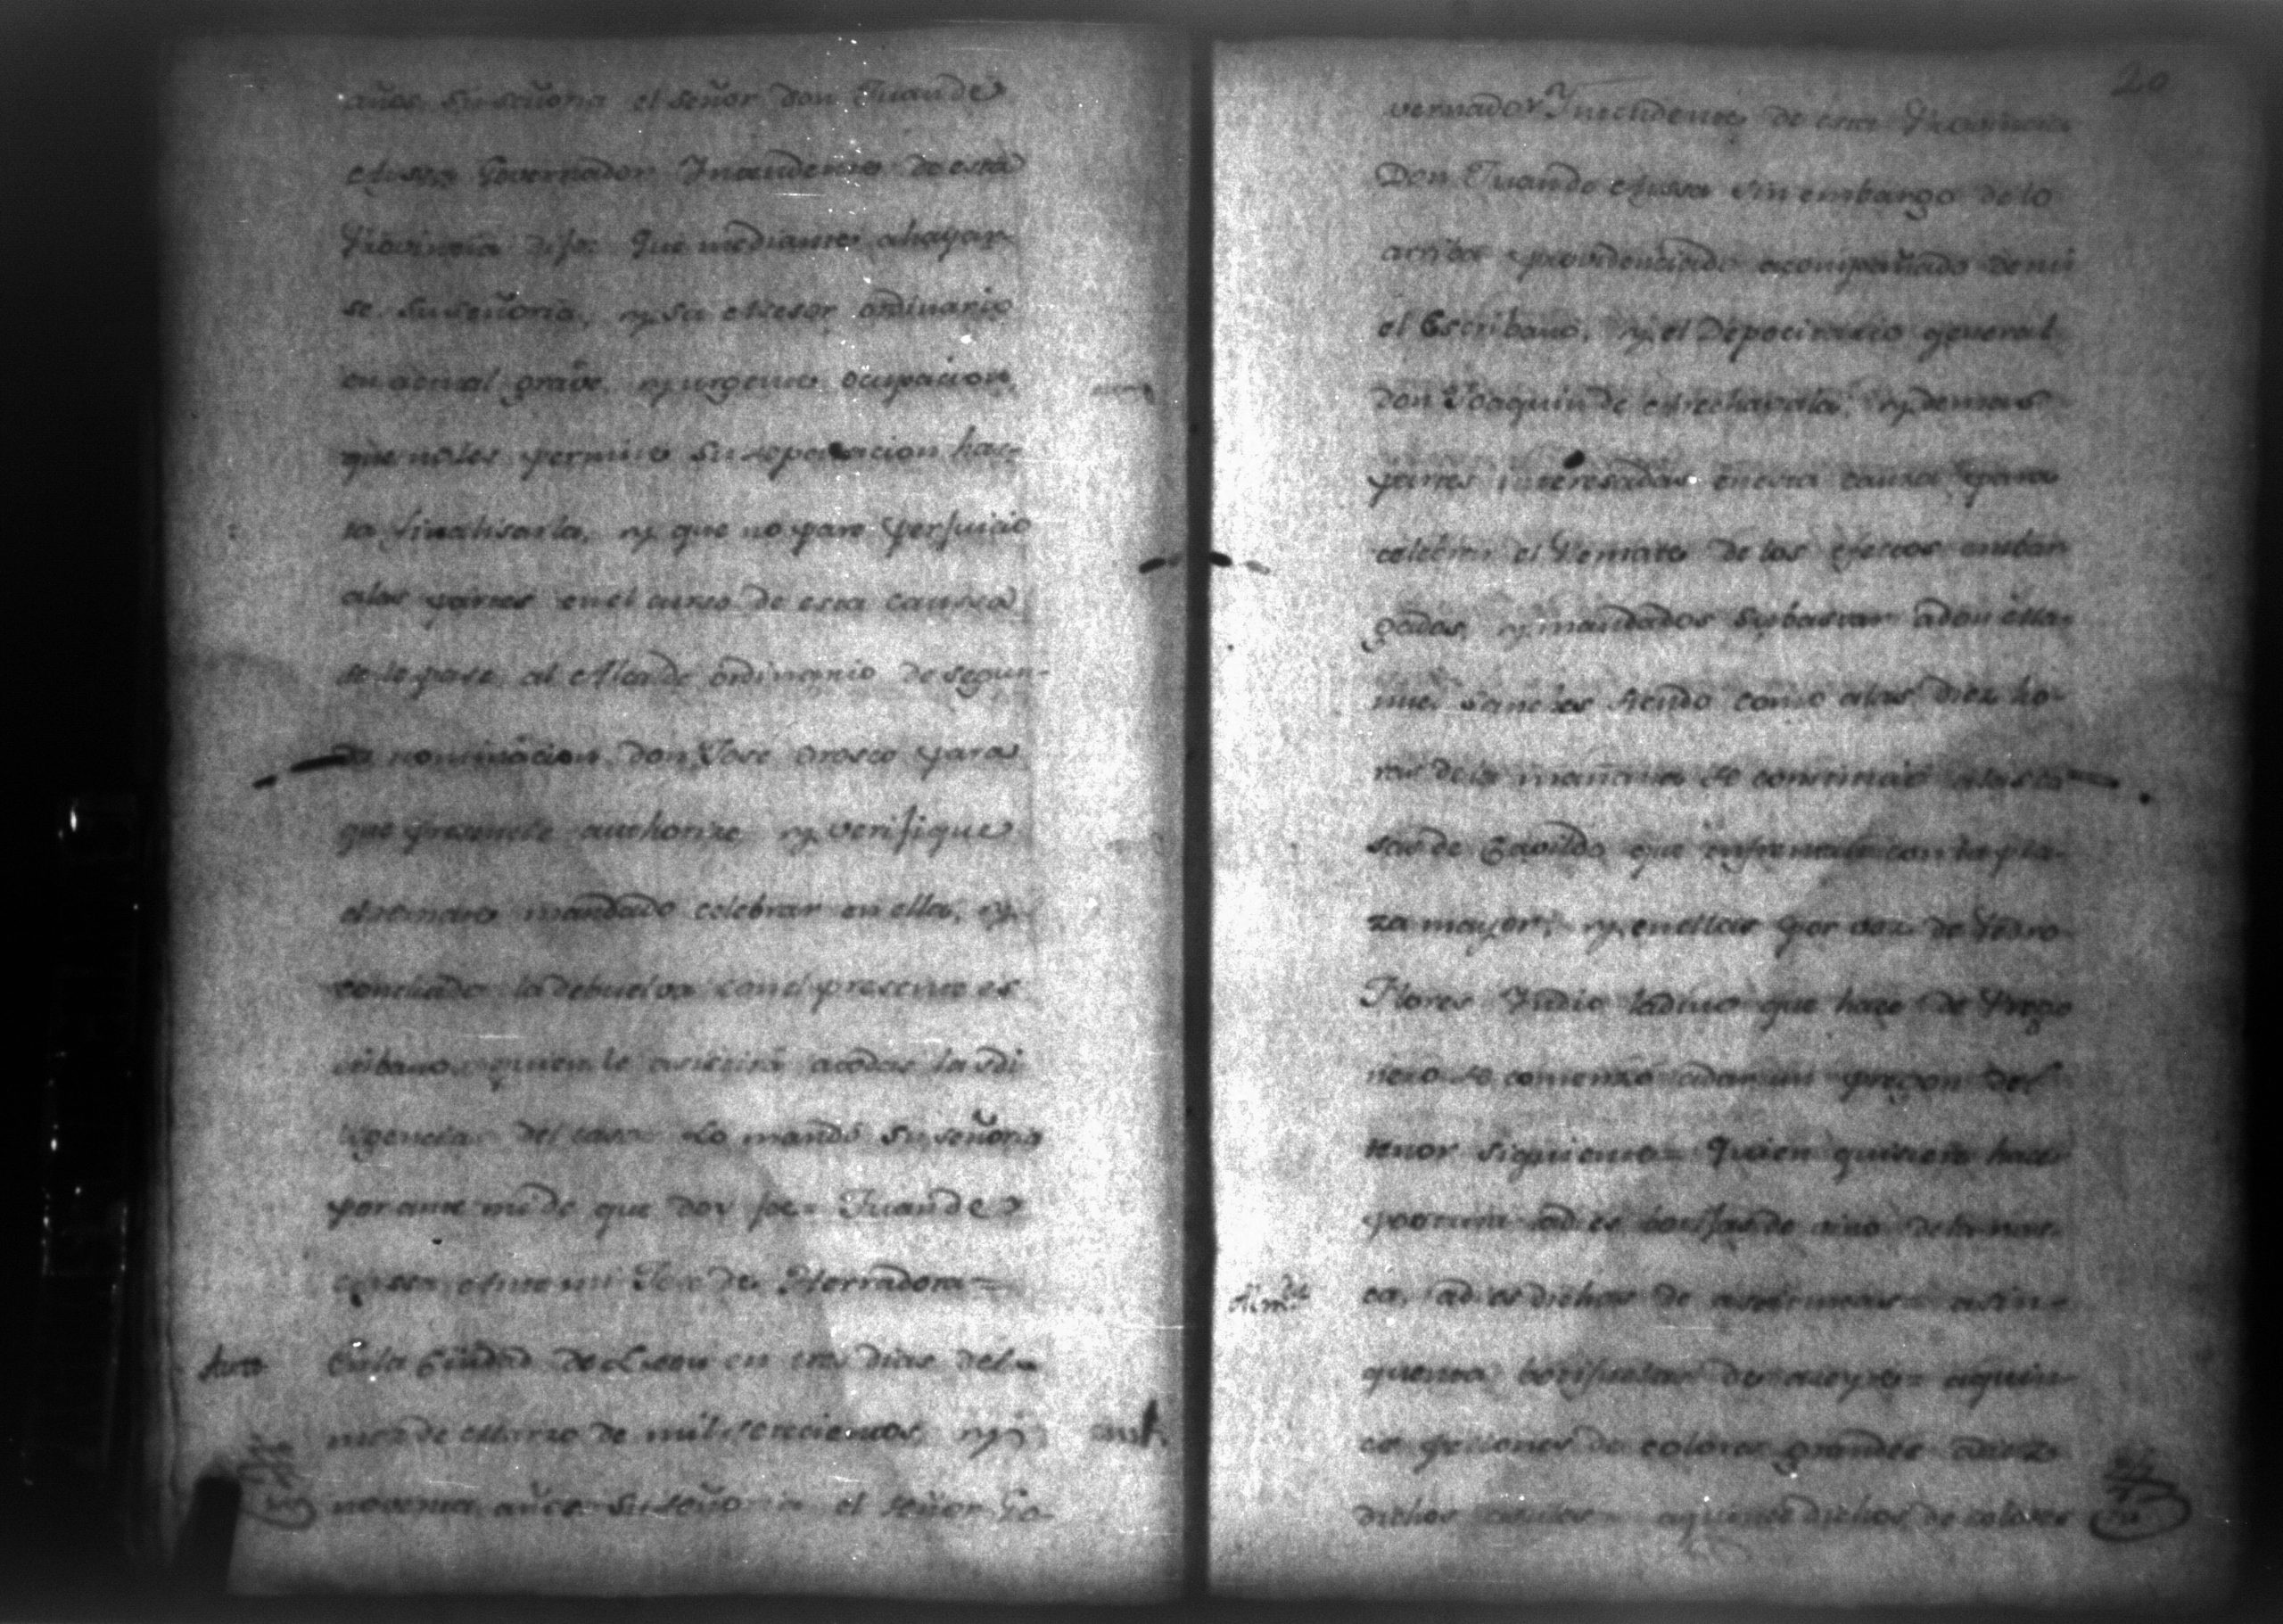 años. Su señoria el señor don Juan de
Ayssa Governador Yntendente de esta
Provincia dijo: Que mediante ahayar
se su señoria, y su Asesor ordinario
en actual grave, y urgente ocupacion
que no les permite su separacion has-
ta finalisarla, y que no pare perjuicio
alas partes en el curso de esta causa
se le pase al Alcalde ordinario de segun-
da nominacion don Jose Orosco para
que presencie authorize y verifique
el remate mandado celebrar en ella, y
concluido la debuelva con el presente es
cribano quien le asistirá atodas las di
ligencias del caso Lo mandó su señoria
por ante mi de que doy fee= Juan de
Ayssa Ante mi Jose de Herradora=
Auto
En la Ciudad de Leon en tres dias del
mes de Marzo de mil setecientos, y
noventa años Su señoria el señor Go-
20
vernador Yntendente de esta Provincia
Don Juan de Ayssa sin embargo de lo
arriba providenciado acompañado de mi
el Escribano, y el Depocitario general
don Joaquin de Arechavala, y demas
partes interesadas en esta causa para
celebrar el Remate de los efectos embar
gados, y mandados subastar adon Ma-
nuel Sanches siendo como alas diez ho-
ras de la mañana se constituió alas ca
sas de Cavildo que enfrentan con la pla-
za mayor, y en ellas por voz de Pedro
Flores Yndio ladino que hace de Prego
nero se comenzó adar un pregon del
tenor siguiente= Quien quisiere hacer
postura adies botijas de vino de
ca, adies dichas de asin-
Alm.da
quenta botijuelas de aceyte= aquin-
ce de colores grandes adiez
dichos aquince dichos de colores